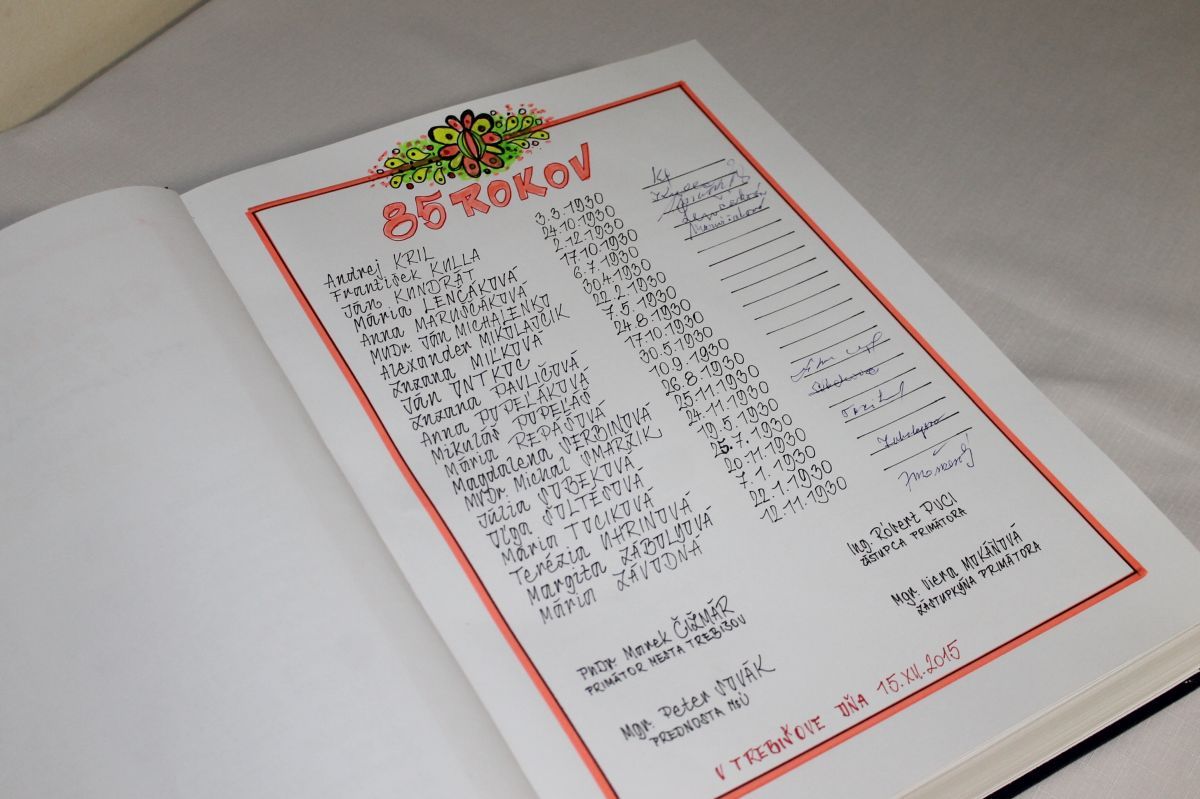 85 ROKOV
Andrej KRIL 3.3.1930
František KULLA 24.10.1930
Ján KUNDRÁT 2.12.1930
Mária LENČÁKOVÁ 17.10.1930
Anna MARUŠČÁKOVÁ 6.7.1930
MVDr. Ján MICHALENKO 30.4.1930
Alexander MIKOLAJČIK 22.2.1930
Zuzana MIĽKOVÁ 7.5.1930
Ján ONTKOC 24.8.1930
Zuzana PAVLIČOVÁ 17.10.1930
Anna POPEĽÁKOVÁ 30.5.1930
Mikuláš POPEĽÁŠ 10.9.1930
Mária REPAŠOVÁ 26.8.1930
Magdaléna SERBINOVÁ 25.11.1930
MVDr. Michal SMARŽIK 24.11.1930
Júlia SOBEKOVÁ 19.5.1930
Oľga ŠOLTÉSOVÁ 25.7.1930
Mária TOCIKOVÁ 20.11.1930
Terézia UHRINOVÁ 7.1.1930
Margita ZÁBOLYOVÁ 22.1.1930
Mária ZÁVODNÁ 12.11.1930
PhDr. Marek ČIŽMÁR
PRIMÁTOR MESTA TREBIŠOV
Ing. Róbert PUCI
ZÁSTUPCA PRIMÁTORA
Mgr. Peter SOVÁK
PREDNOSTA MsÚ
Mgr. Viera MOKÁŇOVÁ
ZÁSTUPKYŇA PRIMÁTORA
V TREBIŠOVE DŇA 15.XII.2015